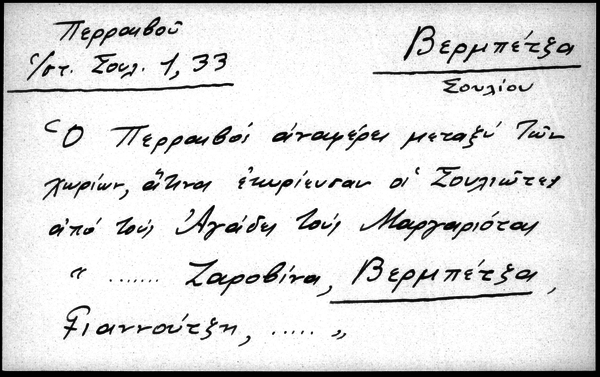 Περραιβοῦ
Ἱστ. Σουλ. 1, 33
Βερμπέτζα
Σουλίου
Ὁ Περραιβὸς ἀναφέρει μεταξὺ τῶν
χωρίων, ἅτινα ἐκυρίευσαν οἱ Σουλιῶται
ἀπὸ τοὺς Ἀγάδες τοὺς Μαργαριότας
" ...... Ζαροβίνα, Βερμπέτζα,
Γιαννούτζη, ..... "